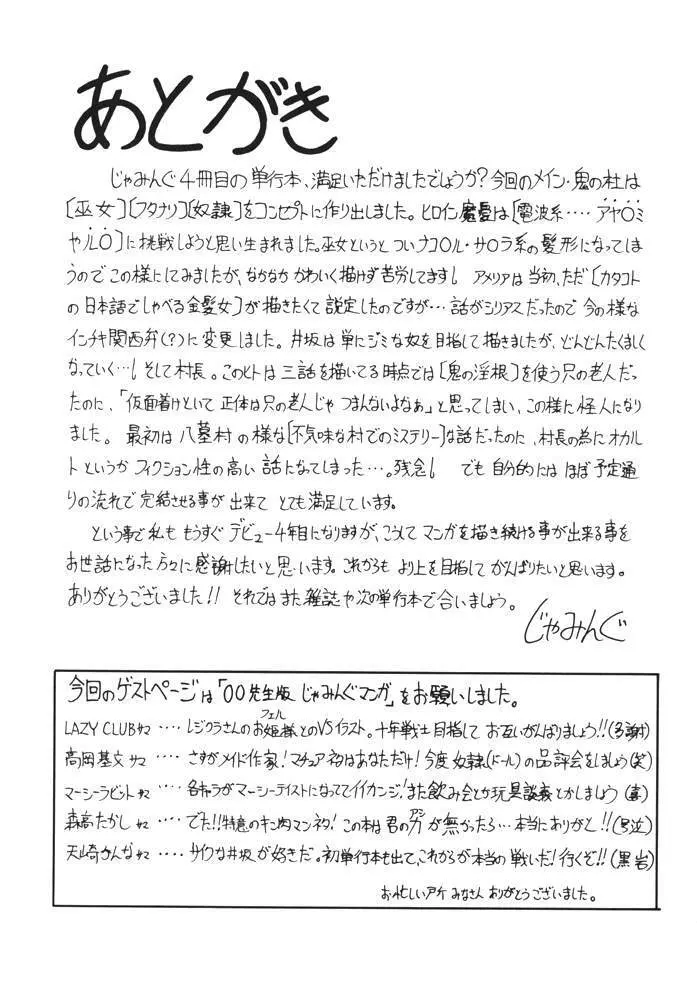 あとがき
じゃみんぐ4冊目の単行本、満足いただけましたでしょうか?今回のメイン・鬼の杜は
[巫女][フタナリ][奴隷]をコンセプトに作り出しました。ヒロイン魔憂は[電波系‥‥アヤ○ミ
や ル○]に挑戦しようと思い生まれました。巫女というと ついナコ○ル・サ○ラ系の髪形になってしま
うので この様にしてみましたが、なかなか かわいく描けず苦労してます! アメリアは当初、ただ[カタコト
の日本語でしゃべる金髪女]が描きたくて設定したのですが…話がシリアスだったので 今の様な
インチキ関西弁(?)に変更しました。井坂は単にジミな奴を目指して描きましたが、どんどんたくましく
なっていく…! そして村長。このヒトは三話を描いてる時点では[鬼の淫根]を使う只の老人だっ
たのに、「仮面着けといて 正体は只の老人じゃ つまんないよなぁ」と思ってしまい、この様に怪人になり
ました。最初は八墓村の様な[不気味な村でのミステリー]な話だったのに、村長の為にオカル
トというか フィクション性の高い話になってしまった…。残念! でも自分的には ほぼ予定通
りの流れで完結させる事が出来て とても満足しています。
という事で私も もうすぐ デビュー4年目になりますが、こうして マンガを描き続ける事が出来る事を
お世話になった方々に感謝したいと思います。これからも より上を目指して がんばりたいと思います。
ありがとうございました!! それではまた雑誌や次の単行本で合いましょう。
じゃみんぐ
今回のゲストページは「○○先生版 じゃみんぐマンガ」をお願いしました。
LAZY CLUBサマ‥‥レジクラさんのお姫様とのVSイラスト。十年戦士目指して お互いがんばりましょう!!(多謝)
フェル
高岡基文サマ‥‥さすがメイド作家!マチュア初はあなただけ!今度 奴隷(ドール)の品評会をしましょう(笑)
マーシーラビットサマ‥‥各キャラがマーシーテイストになっててイイカンジ!また飲み会とか玩具談義とかしましょう(喜)
森高たかしサマ‥‥でた!!特意のキン肉マンネタ!この本は君の力が無かったら…本当にありがと!!(号泣)
アシ
天崎かんなサマ‥‥サイクな井坂が好きだ。初単行本も出て、これからが本当の戦いだ!行くぞ!!(黒岩)
お忙しい中 みなさん ありがとうございました。